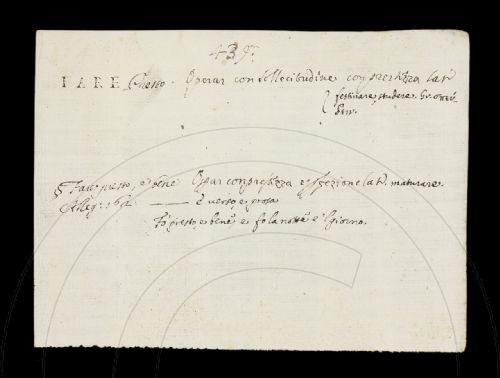 439.
FARE Presto. Operar con sollecitudine con prestezza lat.
festinare, studere. Gr.
§ Fare presto, e bene Oprar con prestezza e perfezione lat. maturare.
Alleg: 162. è verso, e prosa
Fo presto, e bene, e fo la notte e 'l giorno.